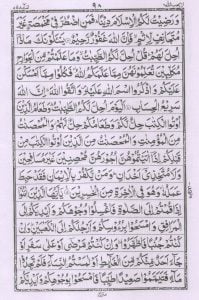 ٩٨
وَرَضِيْتُ لَكُمُ الْاِسْلَامَ دِيْنًا فَمَنِ اضْطُرَّ فِيْ مَخْمَصَةٍ غَيْرَ
مُتَجَانِفٍ لِّاِثْمٍ فَاِنَّ اللهَ غَفُوْرٌ رَّحِيْمٌ يَسْـَٔلُوْنَكَ مَاذَآ
اُحِلَّ لَهُمْ قُلْ اُحِلَّ لَكُمُ الطَّيِّبٰتُ وَمَا عَلَّمْتُمْ مِّنَ الْجَوَارِحِ
مُكَلِّبِيْنَ تُعَلِّمُوْنَهُنَّ مِمَّا عَلَّمَكُمُ اللهُ فَكُلُوْا مِمَّآ اَمْسَكْنَ
عَلَيْكُمْ وَاذْكُرُوا اسْمَ اللهِ عَلَيْهِ وَاتَّقُوا اللهَ اِنَّ اللهَ
سَرِيْعُ الْحِسَابِ اَلْيَوْمَ اُحِلَّ لَكُمُ الطَّيِّبٰتُ وَطَعَامُ الَّذِيْنَ
اُوْتُوا الْكِتٰبَ حِلٌّ لَّكُمْ وَطَعَامُكُمْ حِلٌّ لَّهُمْ وَالْمُحْصَنٰتُ
مِنَ الْمُؤْمِنٰتِ وَالْمُحْصَنٰتُ مِنَ الَّذِيْنَ اُوْتُوا الْكِتٰبَ
مِنْ قَبْلِكُمْ اِذَآ اٰتَيْتُمُوْهُنَّ اُجُوْرَهُنَّ مُحْصِنِيْنَ غَيْرَ مُسٰفِحِيْنَ
وَلَا مُتَّخِذِيْٓ اَخْدَانٍ وَمَنْ يَّكْفُرْ بِالْاِيْمَانِ فَقَدْ حَبِطَ
عَمَلُهٗ وَهُوَ فِي الْاٰخِرَةِ مِنَ الْخٰسِرِيْنَ يٰٓاَيُّهَا الَّذِيْنَ اٰمَنُوْٓا
اِذَا قُمْتُمْ اِلَى الصَّلٰوةِ فَاغْسِلُوْا وُجُوْهَكُمْ وَاَيْدِيَكُمْ اِلَى
الْمَرَافِقِ وَامْسَحُوْا بِرُءُوْسِكُمْ وَاَرْجُلَكُمْ اِلَى الْكَعْبَيْنِ وَاِنْ
كُنْتُمْ جُنُبًا فَاطَّهَّرُوْا وَاِنْ كُنْتُمْ مَّرْضٰٓى اَوْ عَلٰى سَفَرٍ اَوْ
جَآءَ اَحَدٌ مِّنْكُمْ مِّنَ الْغَآئِطِ اَوْ لٰمَسْتُمُ النِّسَآءَ فَلَمْ تَجِدُوْا
مَآءً فَتَيَمَّمُوْا صَعِيْدًا طَيِّبًا فَامْسَحُوْا بِوُجُوْهِكُمْ وَاَيْدِيْكُمْ